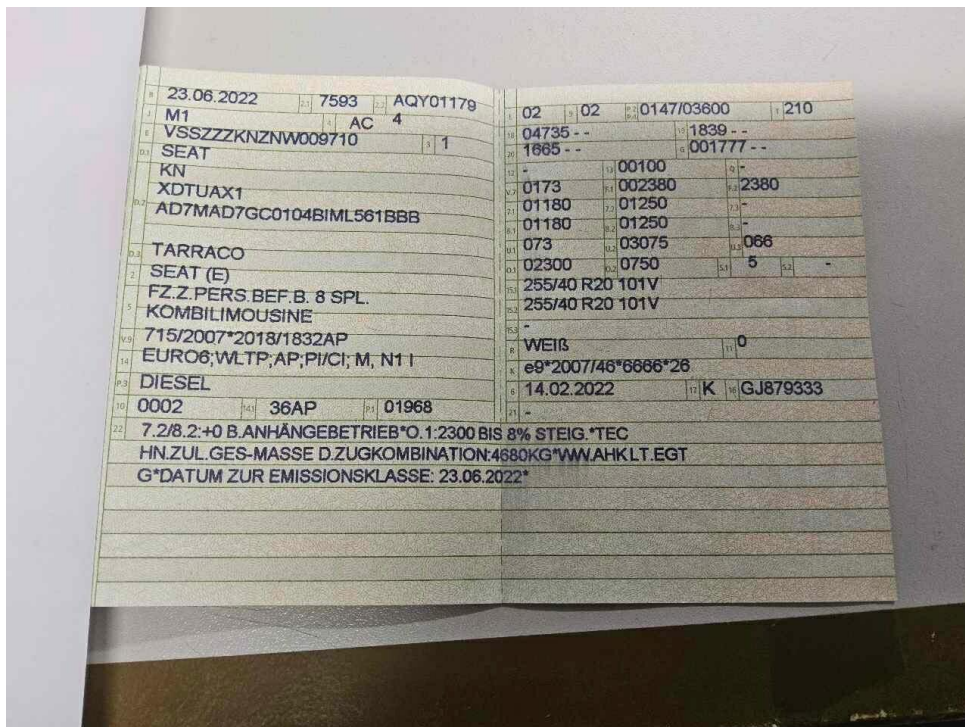 B 23.06.2022 2.1 7593 2.2 AQY01179
J M1 4 AC 4
E VSSZZZKNZNW009710 3 1
D.1 SEAT
KN
D.2 XDTUAX1
AD7MAD7GC0104BIML561BBB
D.3 TARRACO
2 SEAT (E)
5 FZ.Z.PERS.BEF.B. 8 SPL.
KOMBILIMOUSINE
V.9 715/2007*2018/1832AP
14 EURO6;WLTP;AP;PI/CI; M, N1 I
P.3 DIESEL
10 0002 14.1 36AP P.1 01968
L 02 9 02 P.2 P.4 0147/03600 T 210
18 04735 - - 19 1839 - -
20 1665 - - G 001777 - -
12 - 13 00100 Q -
V.7 0173 F.1 002380 F.2 2380
7.1 01180 7.2 01250 7.3 -
8.1 01180 8.2 01250 8.3 -
U.1 073 U.2 03075 U.3 066
O.1 02300 O.2 0750 S.1 5 S.2 -
15.1 255/40 R20 101V
15.2 255/40 R20 101V
15.3 -
R WEIß 11 0
K e9*2007/46*6666*26
6 14.02.2022 17 K 16 GJ879333
21 -
22 7.2/8.2:+0 B.ANHÄNGEBETRIEB*O.1:2300 BIS 8% STEIG.*TEC
HN.ZUL.GES-MASSE D.ZUGKOMBINATION:4680KG*WW.AHK LT.EGT
G*DATUM ZUR EMISSIONSKLASSE: 23.06.2022*